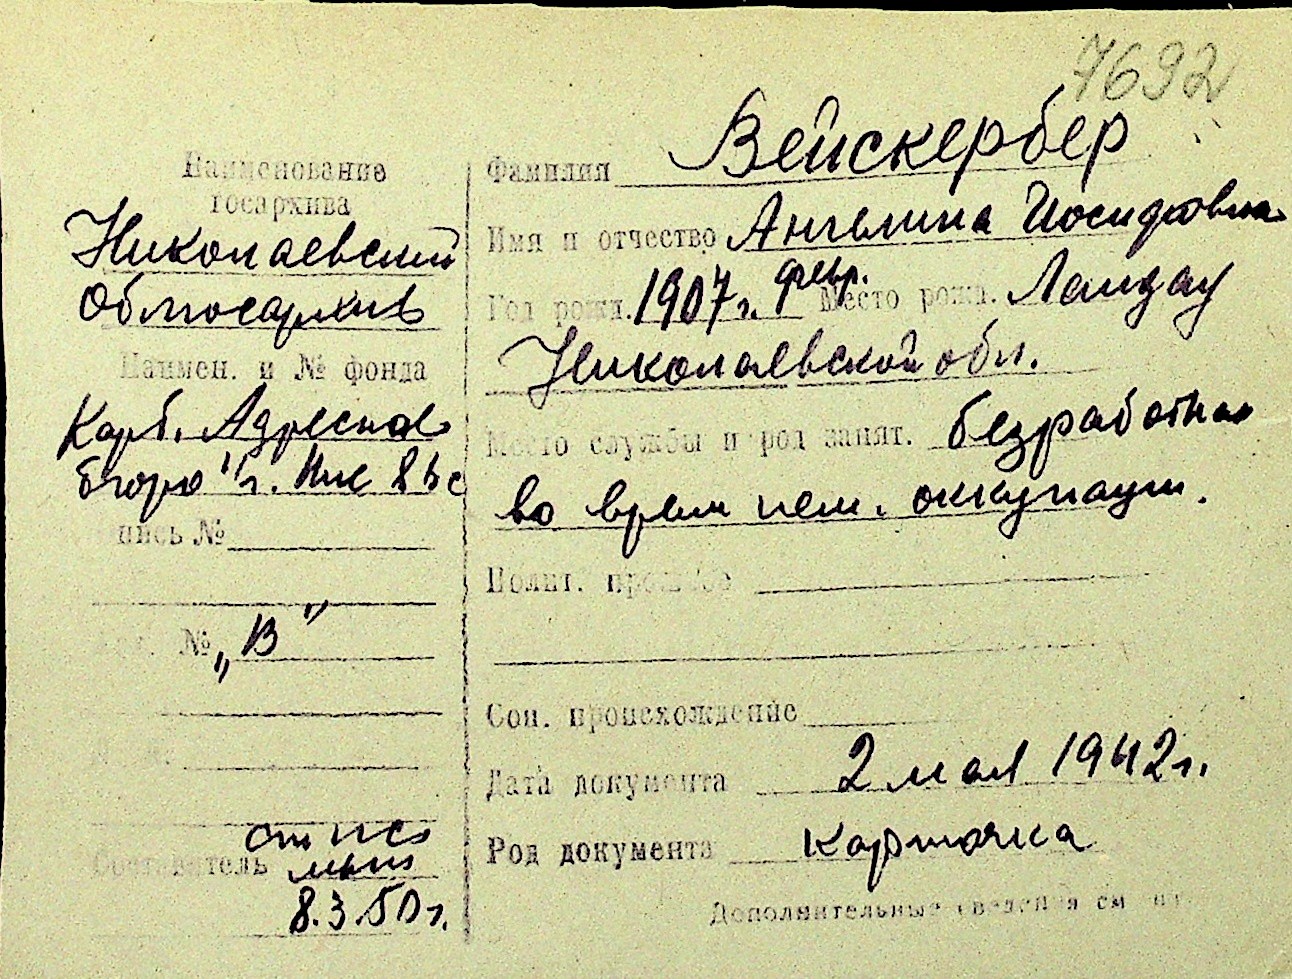 7692
Наименование
госархива
Николаевский
Облгосархив
Наимен. и № фонда
Карт. Адресное
№
№ „В"
Составитель
8.3.50 г.
Фамилия Вейскербер
Имя и отчество Ангелина Иосифовна
Год рожд. 1907 г. февр. Место рожд. Ландау
Николаевской обл.
Место службы и род занят. безработная
во время нем. оккупации.
Полит. прошлое
Соц. происхождение
Дата документа 2 мая 1942 г.
Род документа карточка
Дополнительные сведения см